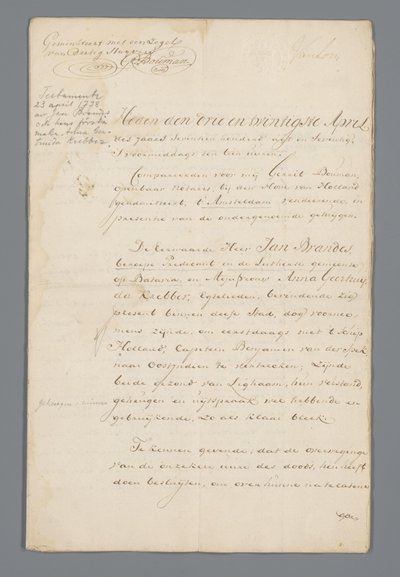 Gemunieert met een Zegel
van Dertig Stuyvers
G. Bouman
Testament
23 april 1778
Jan Brandes
Anna Geertruida Krebber
Heden den drie en twintigste April
des jaars seventien honderd agt en Seventig,
's voormiddags ten tien uuren.
Compareerden voor mij Gerrit Bouman,
openbaar Notaris, bij den Hove van Holland
geadmitteert, t' Amsteldam resideerende, in
presentie van de ondergenoemde getuijgen.
De Eerwaarde Heer Jan Brandes
beroepe Predicant en de Luthersche gemeente
op Batavia, en Mejuffrouw Anna Geertruy
da Krebber, Egtelieden, bevindende zig
present binnen deese Stad, dog voornee
mens zijnde, om eerstdaags met 't Schip
Holland, Capitein Benjamin van der
naar Oostjndien te vertrecken; Zijnde
beide gezond van Lighaam, hun verstand,
geheugen en uijtspraak wel hebbende en
gebruijkende, zo als klaar bleek.
Te kennen gevende, dat de overweginge
van de onzekere uure des doods, hen heeft
doen besluijten, om over hunne natelatene
goe